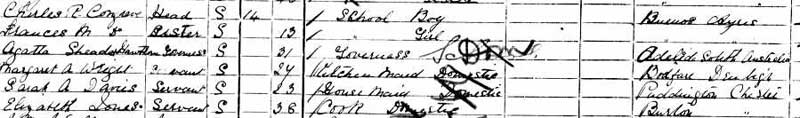 Charles R. Congreve Head S 14 / School Boy Buenos Ayres
Frances M Do Sister S 13 / Do Girl
Agatta Governess S 31 / Governess S. Dom Adelaide South Australia
Margaret A Wright Servant S 27 Kitchen Maid Domestic Bodfare Denbigh
Sarah A Davies Servant S 23 / House Maid Domestic Puddington Chester
Elizabeth Jones Servant S 38 / Cook Domestic Burton "